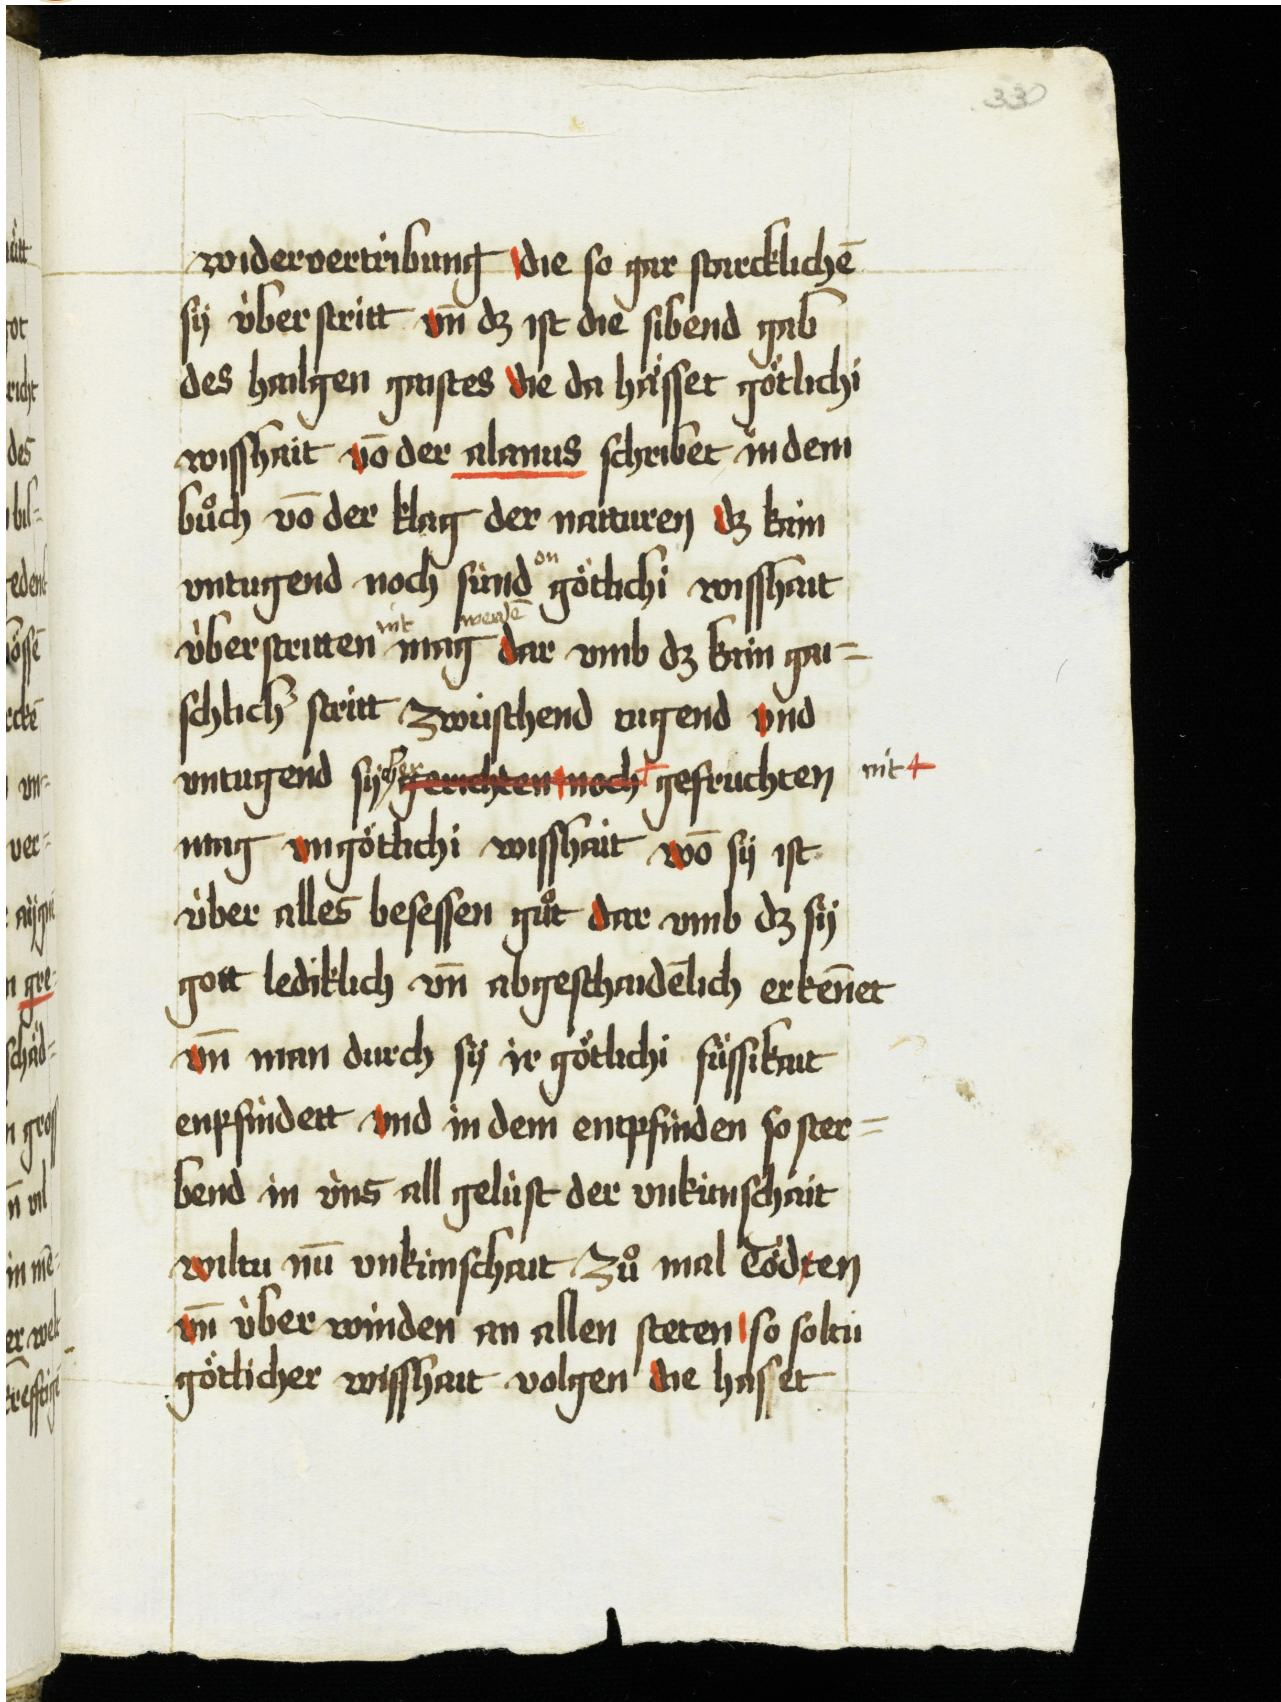 330
widervertribung die so gar starcklichē
sÿ v̇ber stritt vn̄ dʒ ist die sibend gab
des hailgen gaistes die da haͤsset goͤtlichi
wisshait vō der alanus schribet in dem
buͦch vō der klag der natturen dʒ kain
vntugend noch sünd on goͤtlichi wisshait
v̇ber stritten nit mag werdē dar vmb dʒ kain gai=
schlich' stritt zwüschend tugend vnd
vntugend sÿ gerichten noch gefruchten nit +
mag vn goͤtlichi wisshait wō sÿ ist
v̇ber alles besessen guͦt dar vmb dʒ sÿ
gott lediklich vn̄ abgeschaidēlich erken̄et
vn̄ man durch sÿ ir goͤtlichi suͤssikait
enpfindett vnd in dem entpfinden so ster=
bend in v̇ns all gelüst der vnkünschait
wiltu nū vnkünschait zuͦ mal toͤdten
vn̄ v̇ber winden an allen steten so soltu
goͤtlicher wisshait volgen die hasset